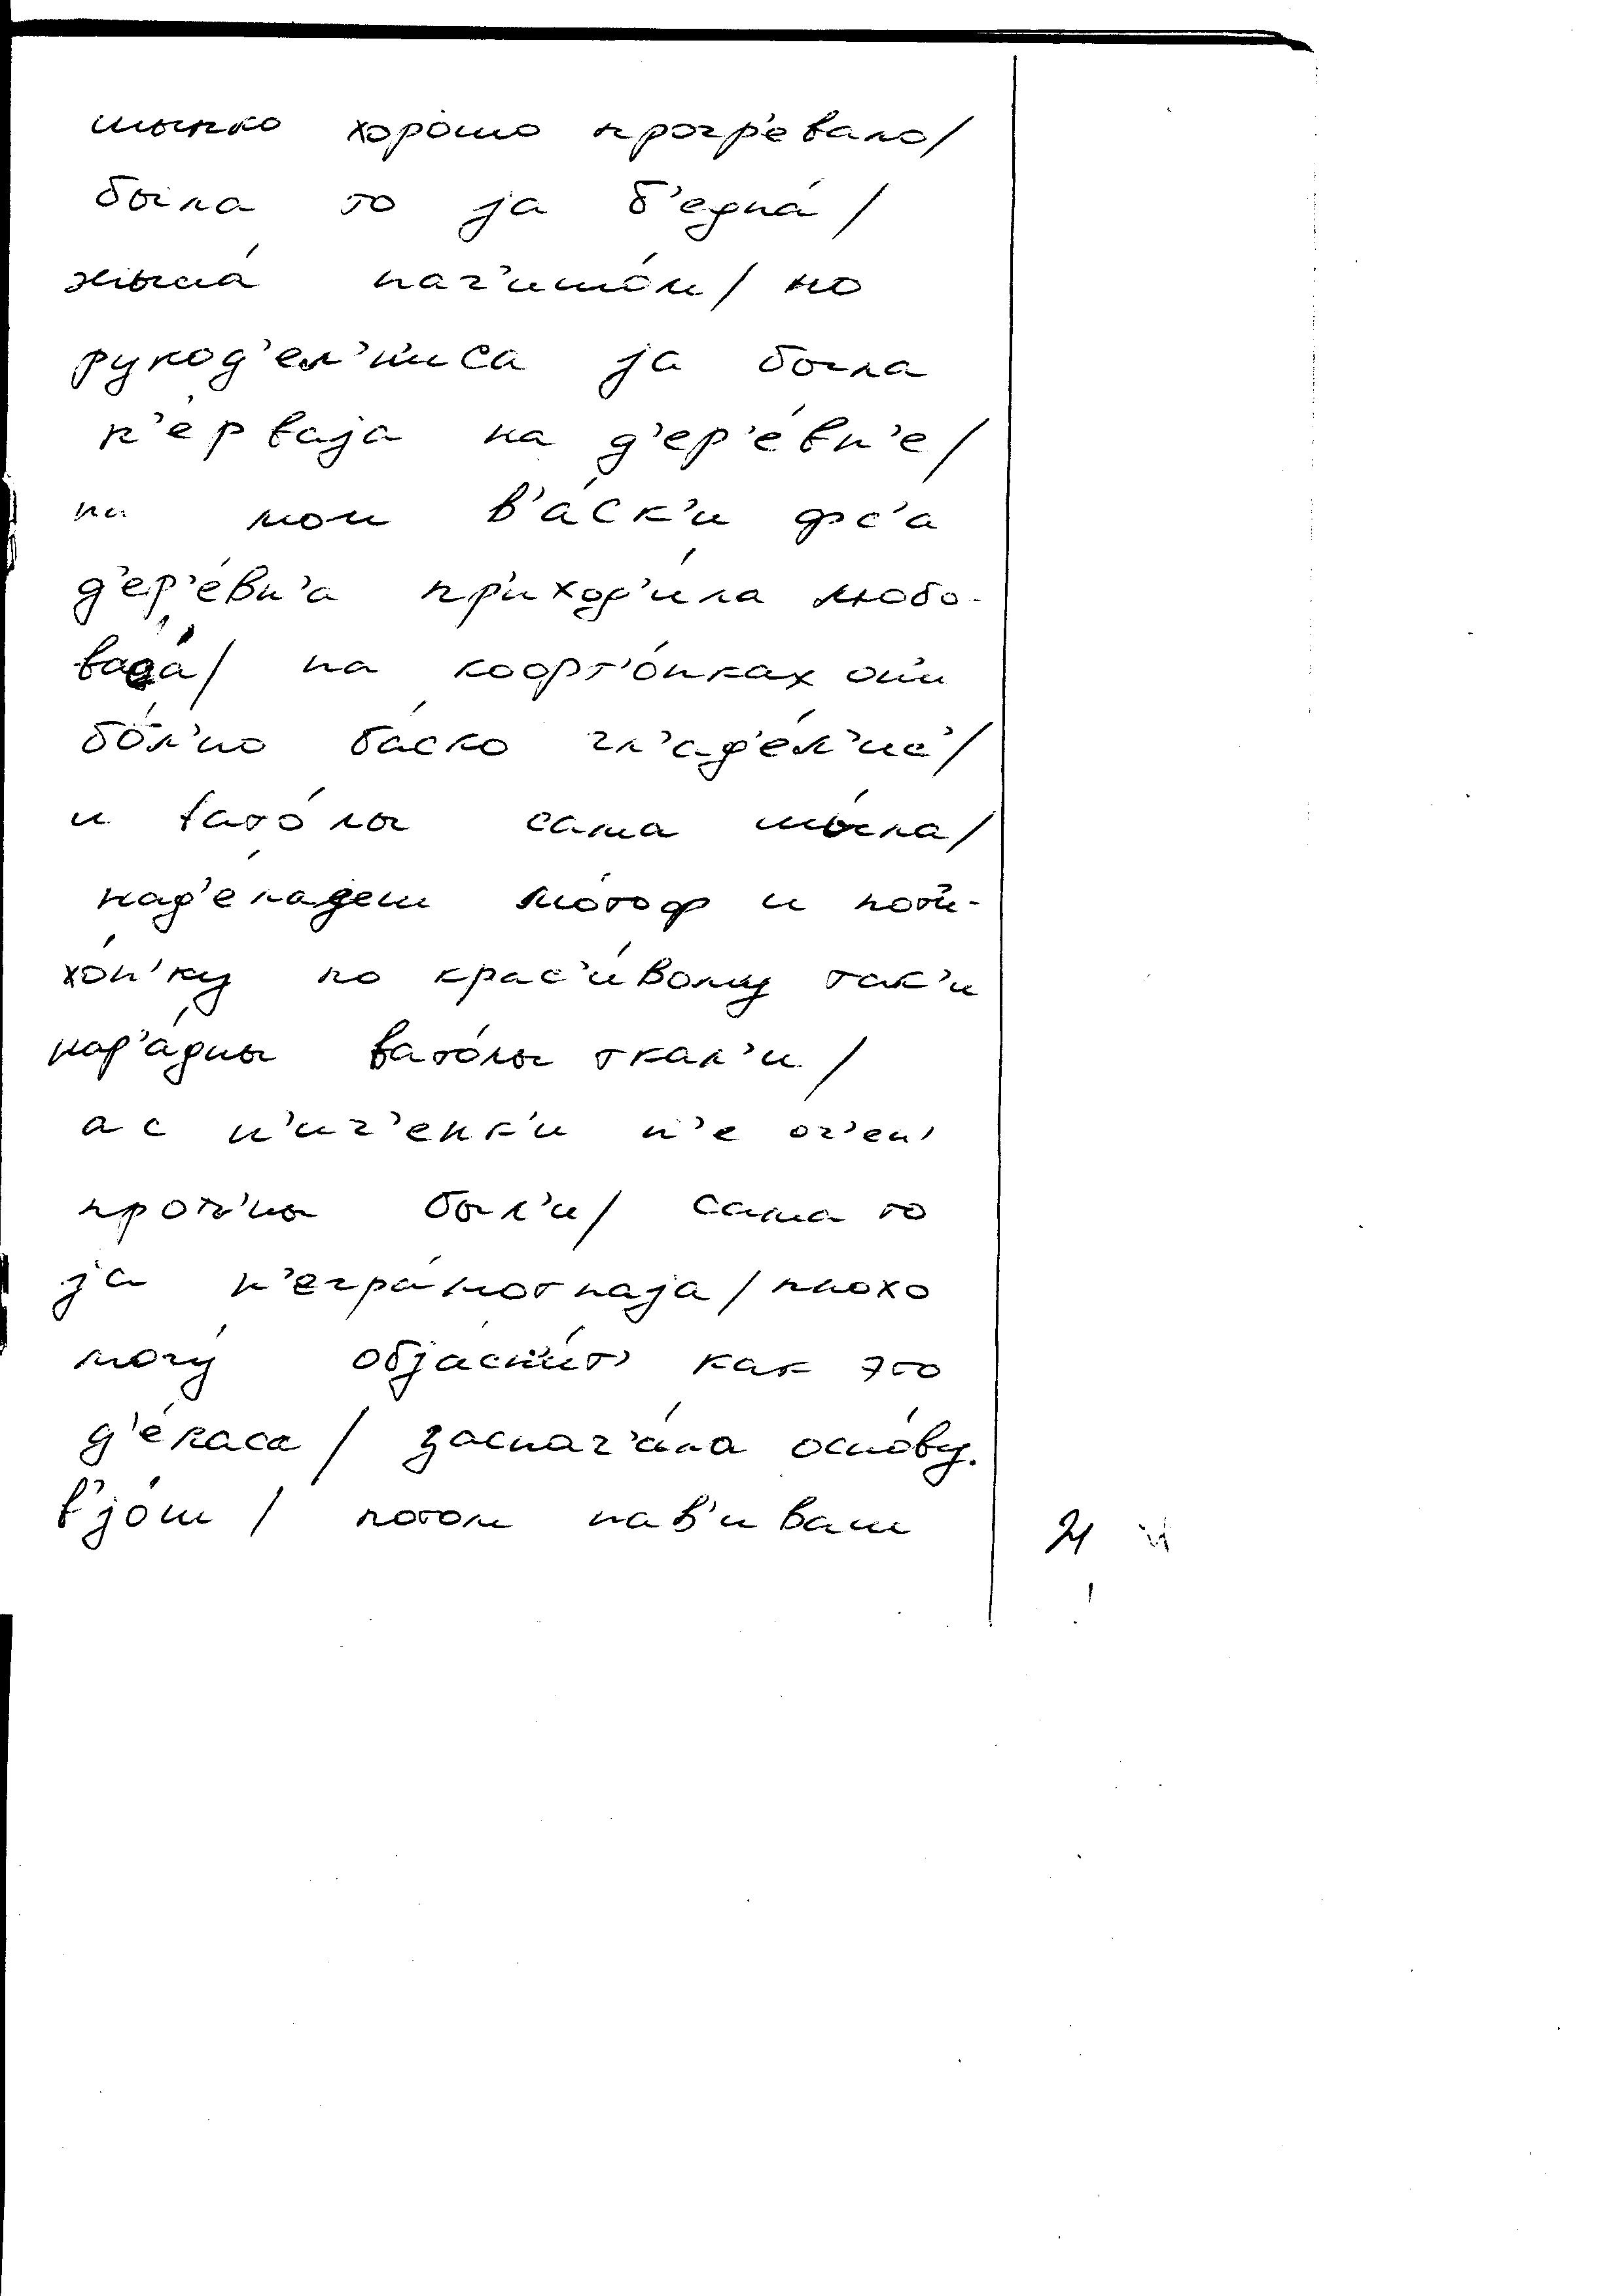 шынко хорошо прогр'евало/
была то ја б'една́/
жыла́ нагишо́м/ но
рукод'ел'н'иса ја была
п'е́рваја на д'ер'е́вн'е/
на мои в'а́ск'и фс'а
д'ер'е́вн'а пр'иход'и́ла любо-
вац'а́/ на коорт'о́нках он'и
бо́л'но ба́ско гл'ад'е́л'ис'/
и вато́лы сама шы́ла/
над'е́лаjеш мо́тоф и пот'и-
хо́н'ку по крас'и́вому так'и
нар'а́дны вато́лы ткал'и/
а с н'и́ч'енк'и н'е оч'ен'
проч'ны был'и/ сама то
ја н'егра́мотнаја/ плохо
могу́ објасн'и́т' как это
д'е́ласа/ заснач'а́ла осно́ву.
в'јо́ш/ потом нав'иваш
21